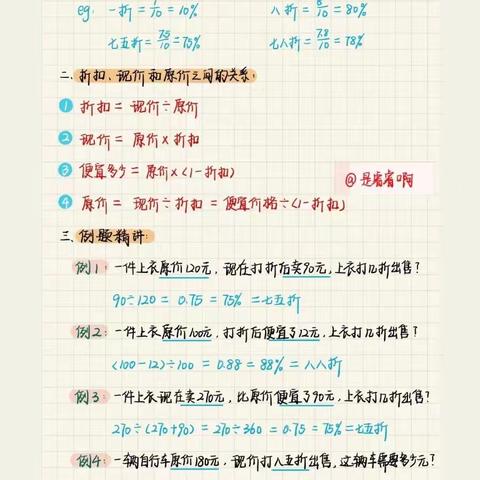 eg: 一折=1/10=10% 八折=8/10=80%
七五折=7.5/10=75% 七八折=7.8/10=78%
二、折扣、现价和原价之间的关系:
① 折扣 = 现价÷原价
② 现价 = 原价×折扣
③ 便宜多少 = 原价×(1-折扣)
@是宥宥啊
④ 原价 = 现价÷折扣 = 便宜价格÷(1-折扣)
三、例题精讲:
例1: 一件上衣原价120元, 现在打折后卖90元, 上衣打几折出售?
90÷120 = 0.75 = 75% =七五折
例2: 一件上衣原价100元, 打折后便宜了12元, 上衣打几折出售?
(100-12)÷100 = 0.88 = 88% = 八八折
例3: 一件上衣现在卖270元, 比原价便宜了90元, 上衣打几折出售?
270÷(270+90) = 270÷360 = 0.75 = 75%=七五折
例4: 一辆自行车原价180元, 现价打八五折出售, 这辆车需要多少元?